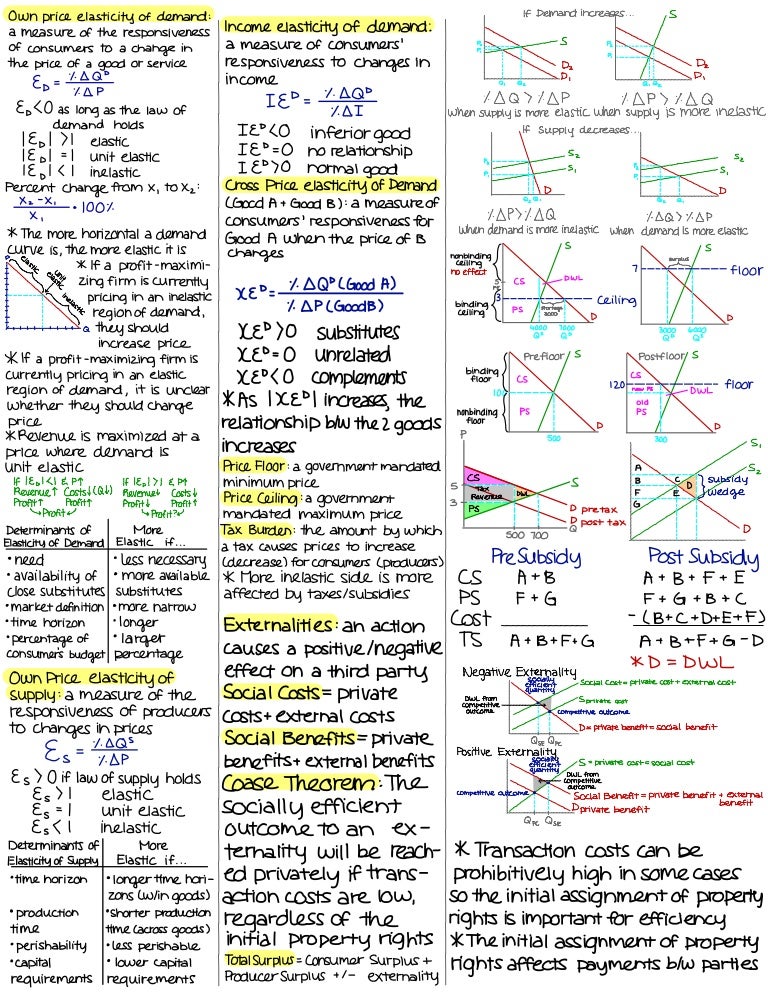 Own price elasticity of demand:
a measure of the responsiveness
of consumers to a change in
the price of a good or service
ƐD = %ΔQᴰ / %ΔP
ƐD<0 as long as the law of
demand holds
|ƐD| >1 elastic
|ƐD| =1 unit elastic
|ƐD| <1 inelastic
Percent change from x₁ to x₂:
x₂-x₁ / x₁ · 100%
* The more horizontal a demand
curve is, the more elastic it is
elastic
unit elastic
inelastic
Q
* If a profit-maximi-
zing firm is currently
pricing in an inelastic
region of demand,
they should
increase price
* If a profit-maximizing firm is
currently pricing in an elastic
region of demand, it is unclear
whether they should change
price
* Revenue is maximized at a
price where demand is
unit elastic
If |ƐD|<1 & P↑
Revenue↑ Costs↓(Q↓)
Profit↑ Profit↑
Profit↑
If |ƐD|>1 & P↑
Revenue↓ Costs↓
Profit↓ Profit↑
Profit?
Determinants of Elasticity of Demand | More Elastic if...
• need | • less necessary
• availability of close substitutes | • more available substitutes
• market definition | • more narrow
• time horizon | • longer
• percentage of consumers budget | • larger percentage
Own Price elasticity of
supply: a measure of the
responsiveness of producers
to changes in prices
ƐS = %ΔQˢ / %ΔP
ƐS >0 if law of supply holds
ƐS >1 elastic
ƐS =1 unit elastic
ƐS <1 inelastic
Determinants of Elasticity of Supply | More Elastic if...
• time horizon | • longer time hori-
zons (w/in goods)
• production time | • shorter production time (across goods)
• perishability | • less perishable
• capital requirements | • lower capital requirements
Income elasticity of demand:
a measure of consumers'
responsiveness to changes in
income
IƐᴰ = %ΔQᴰ / %ΔI
IƐᴰ<0 inferior good
IƐᴰ=0 no relationship
IƐᴰ>0 normal good
Cross Price elasticity of Demand
(Good A + Good B): a measure of
consumers' responsiveness for
Good A when the price of B
changes
XƐᴰ = %ΔQᴰ(Good A) / %ΔP(Good B)
XƐᴰ>0 substitutes
XƐᴰ=0 unrelated
XƐᴰ<0 complements
*As |XƐᴰ| increases, the
relationship b/w the 2 goods
increases
Price Floor: a government mandated
minimum price
Price Ceiling: a government
mandated maximum price
Tax Burden: the amount by which
a tax causes prices to increase
(decrease) for consumers (producers)
* More inelastic side is more
affected by taxes/subsidies
Externalities: an action
causes a positive/negative
effect on a third party
Social Costs = private
costs + external costs
Social Benefits = private
benefits + external benefits
Coase Theorem: The
socially efficient
outcome to an ex-
ternality will be reach-
ed privately if trans-
action costs are low,
regardless of the
initial property rights
Total Surplus = Consumer Surplus +
Producer Surplus +/- externality
If Demand increases...
S
D₂
D₁
P₂
P₁
Q₁ Q₂
S
D₂
D₁
P₂
P₁
Q₁ Q₂
%ΔQ > %ΔP
when supply is more elastic
%ΔP > %ΔQ
when supply is more inelastic
If Supply decreases...
S₂
S₁
D
P₂
P₁
Q₂ Q₁
S₂
S₁
D
P₂
P₁
Q₂ Q₁
%ΔP > %ΔQ
when demand is more inelastic
%ΔQ > %ΔP
when demand is more elastic
nonbinding ceiling
no effect
binding ceiling
3
CS
PS
DWL
shortage
3000
4000 7000
Qˢ Qᴰ
S
D
ceiling
7
surplus
S
D
floor
3000 6000
Qᴰ Qˢ
Prefloor
binding floor
nonbinding floor
10
CS
PS
500
S
D
Postfloor
120
CS
new PS
old PS
DWL
300
S
D
floor
P
5
3
CS
Tax Revenue
PS
DWL
S
D pretax
D post tax
500 700
Q
A
B
F
G
C
D
E
S₁
S₂
D
subsidy wedge
Pre Subsidy | Post Subsidy
CS | A + B | A + B + F + E
PS | F + G | F + G + B + C
Cost | | -(B+C+D+E+F)
TS | A+B+F+G | A+B+F+G-D
* D = DWL
Negative Externality
socially efficient quantity
DWL from competitive outcome
Social Cost = private cost + external cost
S private cost
competitive outcome
D = private benefit = social benefit
QSE QPC
Positive Externality
socially efficient quantity
S = private cost = social cost
DWL from competitive outcome
competitive outcome
Social Benefit = private benefit + external benefit
D private benefit
QPC QSE
* Transaction costs can be
prohibitively high in some cases
so the initial assignment of property
rights is important for efficiency
* The initial assignment of property
rights affects payments b/w parties